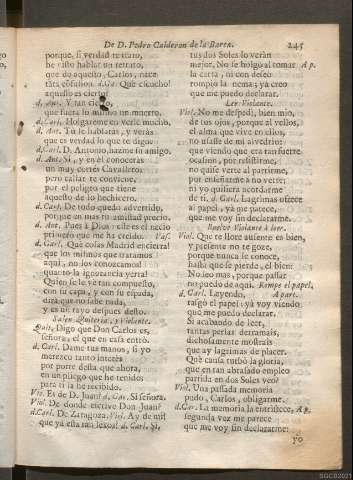 De D. Pedro Calderon de la Barca. 245
porque, si verdad te trato,
he visto hablar un retrato,
que de aquesto, Carlos, nace
esta confusion. d. Car. Que escucho!
aquesto es cierto?
d. Ant. Y tan cierto,
que fuera lo mismo un muerto.
d. Carl. Holgareme en verle mucho.
d. Ant. Tu le hablaràs, y veràs
que es verdad lo que te digo.
d. Carl. D. Antonio, hazeme tu amigo.
d. Ant. Si, y en èl conoceràs
un muy cortès Cavallero:
pero callar te conviene,
por el peligro que tiene
aquesto de lo hechicero.
d. Carl. De todo quedo advertido,
porque en mas tu amistad precio.
d. Ant. Pues à Dios: este es el necio
primero que me ha creìdo. Vas.
d. Carl. Què cosas Madrid encierra!
que los mismos que tratamos
aqui, no los conozcamos!
quanto la ignorancia yerra!
Quien se le vè tan compuesto,
con su capa, y con su espada,
dirà que no sabe nada,
y es un rayo despues desto.
Salen Quiteria, y Violante.
Quit. Digo que Don Carlos es,
señora, el que en casa entrò.
d. Carl. Dame tus manos, si yo
merezco tanto interès
por porte desta que ahora,
en un pliego que he tenido
para ti la he recibido.
Vio. Es de D. Juan? d. Car. Si señora.
Viol. De donde escrive Don Juan?
d. Carl. De Zaragoza. Viol. Ay de mi!
que yà està tan lexos! d. Carl. Si,
tus dos Soles lo veràn
mejor. No se holgò al tomar Ap.
la carta, ni con deseo
rompiò la nema; yà creo
que me puedo declarar.
Lee Violante.
Viol. No me despedì, bien mio,
de tus ojos, porque al vellos,
el alma que vive en ellos,
no usasse de mi alvedrio:
que viendo que era tan fuerte
ocasion, por resistirme,
no quise verte al partirme,
por enseñarme à no verte:
ni yo quisiera acordarme
de ti. d. Carl. Lagrimas ofrece
al papel, yà me parece,
que me voy sin declararme.
Buelve Violante à leer.
Viol. Que te llore ausente es bien,
y presente no te goze,
porque nunca se conoce,
hasta que se pierde, el bien:
No leo mas, porque passar
no puedo de aqui. Rompe el papel.
d. Carl. Leyendo, Aparte.
rasgò el papel: yà voy viendo,
que me puedo declarar.
Si acabando de leer,
tantas perlas derramais,
dichosamente mostrais
que ay lagrimas de placer.
Què causa turbò la gloria,
que en tan abrasado empleo
partida en dos Soles veo?
Viol. Una passada memoria
pudo, Carlos, obligarme.
d. Car. La memoria la entristece, Ap.
segunda vez me parece
que me voy sin declararme:
yo
SGCB2021